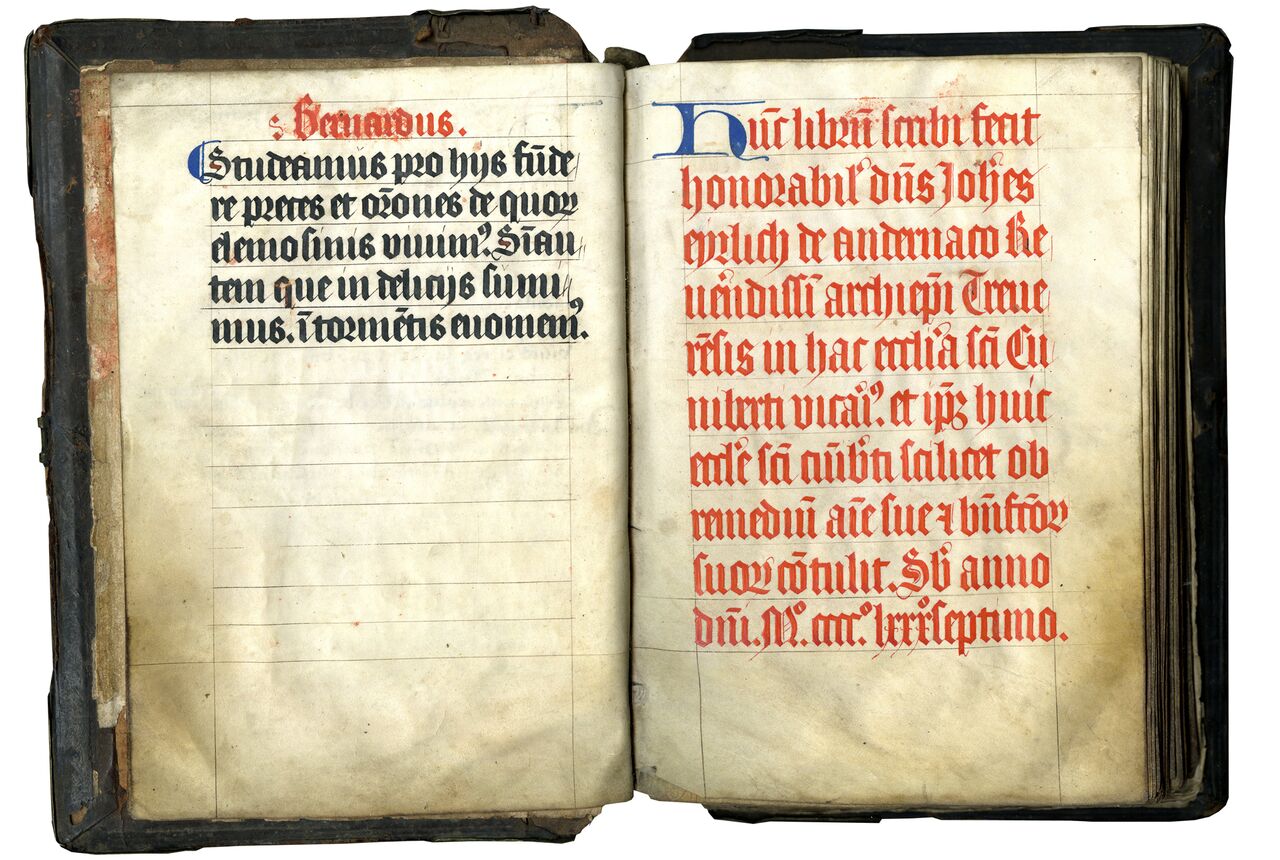 s Bernardus.
Studeamus pro hijs fūde
re preces et or̄ones de quoꝝ
elemosinis viuimꝰ. Sīau
tem que in delicijs sumi
mus. ī tormētis euomemꝰ.
Hūc librū scribi fecit
honorabilʼ dn̄s Joh̄es
eyrlich de andernaco Re
uēndissī archiep̄i Treue
rēsis in hac eccl̄ia sc̄i Cu
niberti vicaīꝰ. et ip̄ꝫ huic
eccle̓ sc̄i cuīb̓ti scilicet ob
remediū aīe sue ⁊ bn̄fc̄oꝝ
suoꝝ cōtulit. Sb̓ anno
dn̄i. Mº. ccccº. lxxxºseptimo.